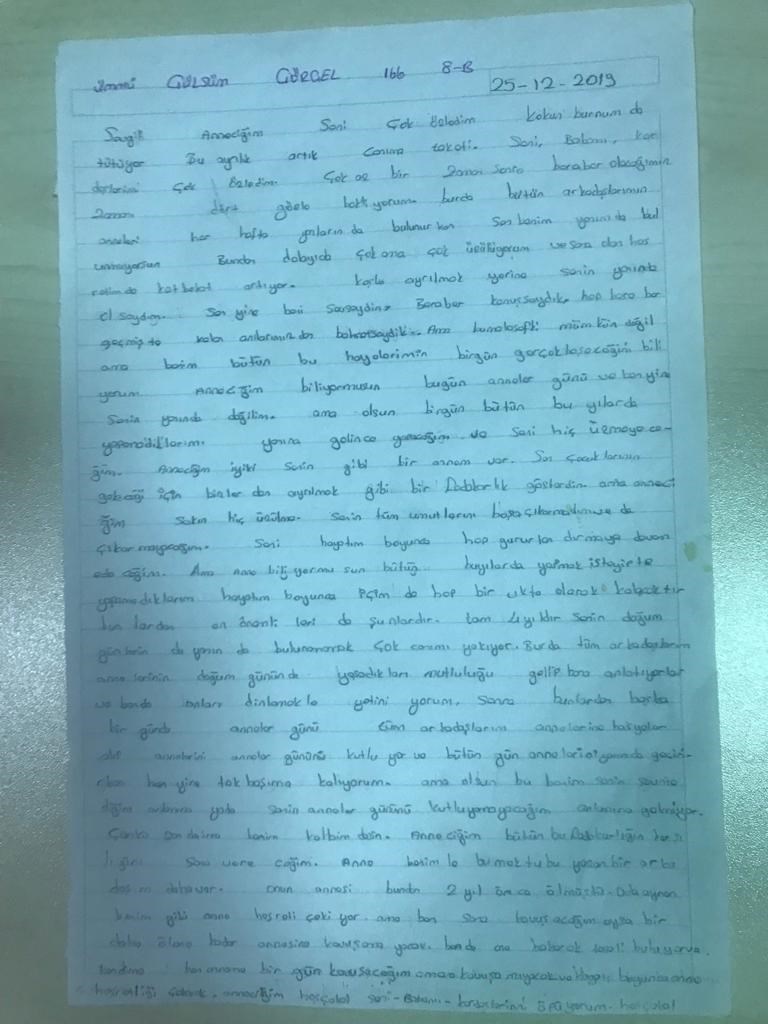 Ümmü GÜLSÜM GÜRGEL 166 8-B
25-12-2019
Sevgili Anneciğim Seni Çok özledim kokun burnum da
tütüyor Bu ayrılık artık canıma tak etti. Seni, Babamı, kar
deşlerimi çok özledim. Çok az bir zaman sonra beraber olacağımız
zaman dört gözle bekliyorum. burda bütün arkadaşlarımın
anneleri her hafta yanların da bulunur ken Sen benim yanım da bul
unmuyorsun Bundan dolayıda çok ama çok üzülüyorum ve sana olan has
retim de kat be kat artıyor. keşke ayrılmak yerine senin yanında
olsaydım. Sen yine beni sevseydin. Beraber konuşsaydık. hep bera ber
geçmiş te kalan anılarımız dan bahsetseydik. Ama bunlar mümkün değil
ama benim bütün bu hayalerimin birgün gerçekleşeceğini bili
yorum. Anneciğim biliyormusun bugün anneler günü ve ben yine
Senin yanında değilim. ama olsun birgün bütün bu yılarda
yapamadıklarımı yanına gelince yapacağım. ve Seni hiç üzmeyece-
ğim. Anneciğim iyiki Senin gibi bir annem var. Sen çocuklarının
geleceği için binler den ayrılmak gibi bir fedakarlık gösterdin. ama anneci
ğim sakın hiç üzülme. Senin tüm umutlarını boşa da
çıkar mayacağım. Seni hayatım boyunca hep gururlan dırmaya devam
ede ceğim. Ama anne biliyormu sun bütün bu yılarda yapmak isteyip te
yapamadıklarım hayatım boyunca içim de hep bir ukte olarak kalacaktır
bun lardan en önemli leri de şunlardır. tam 4 yıldır senin doğum
günlerin de yanın da bulunamamak çok canımı yakıyor. Burda tüm arkadaşlarım
anne lerinin doğum gününde yaşadıkları mutluluğu gelip bana anlatıyorlar
ve bende onları dinlemek le yetini yorum. Sonra bunlardan başka
bir günde anneler günü tüm arkadaşlarım annelerine hediyeler
alıp annelerini anneler gününü kutlu yor ve bütün gün annelerinin yanında geçiri-
ken ben yine tek başıma kalıyorum. ama olsun bu benim senin sevme
diğim anlamına yada Senin anneler gününü kutluyamayacağım anlamına gelmiyor.
Çünkü sen daima benim kalbim desin. Anneciğim bütün bu fedakarlığın karşı
lığını Sana vere ceğim. Anne benim le bu mektubu yazan bir arka
daşım daha var. onun annesi bundan 2 yıl önce ölmüştü. Oda aynen
benim gibi anne hasreti çeki yor. ama ben sana kavuşacağım oysa bir
daha ölene kadar annesine kavuşama yacak. bende ona bakarak teseli buluyorum.
kendime ben anneme bir gün kavuşacağım ama o kavuşa mayacak ve boyunca anne
hasretliği çekecek. anneciğim hoşçakal seni - Babamı - kardeşlerimi öpüyorum. hoşçakal